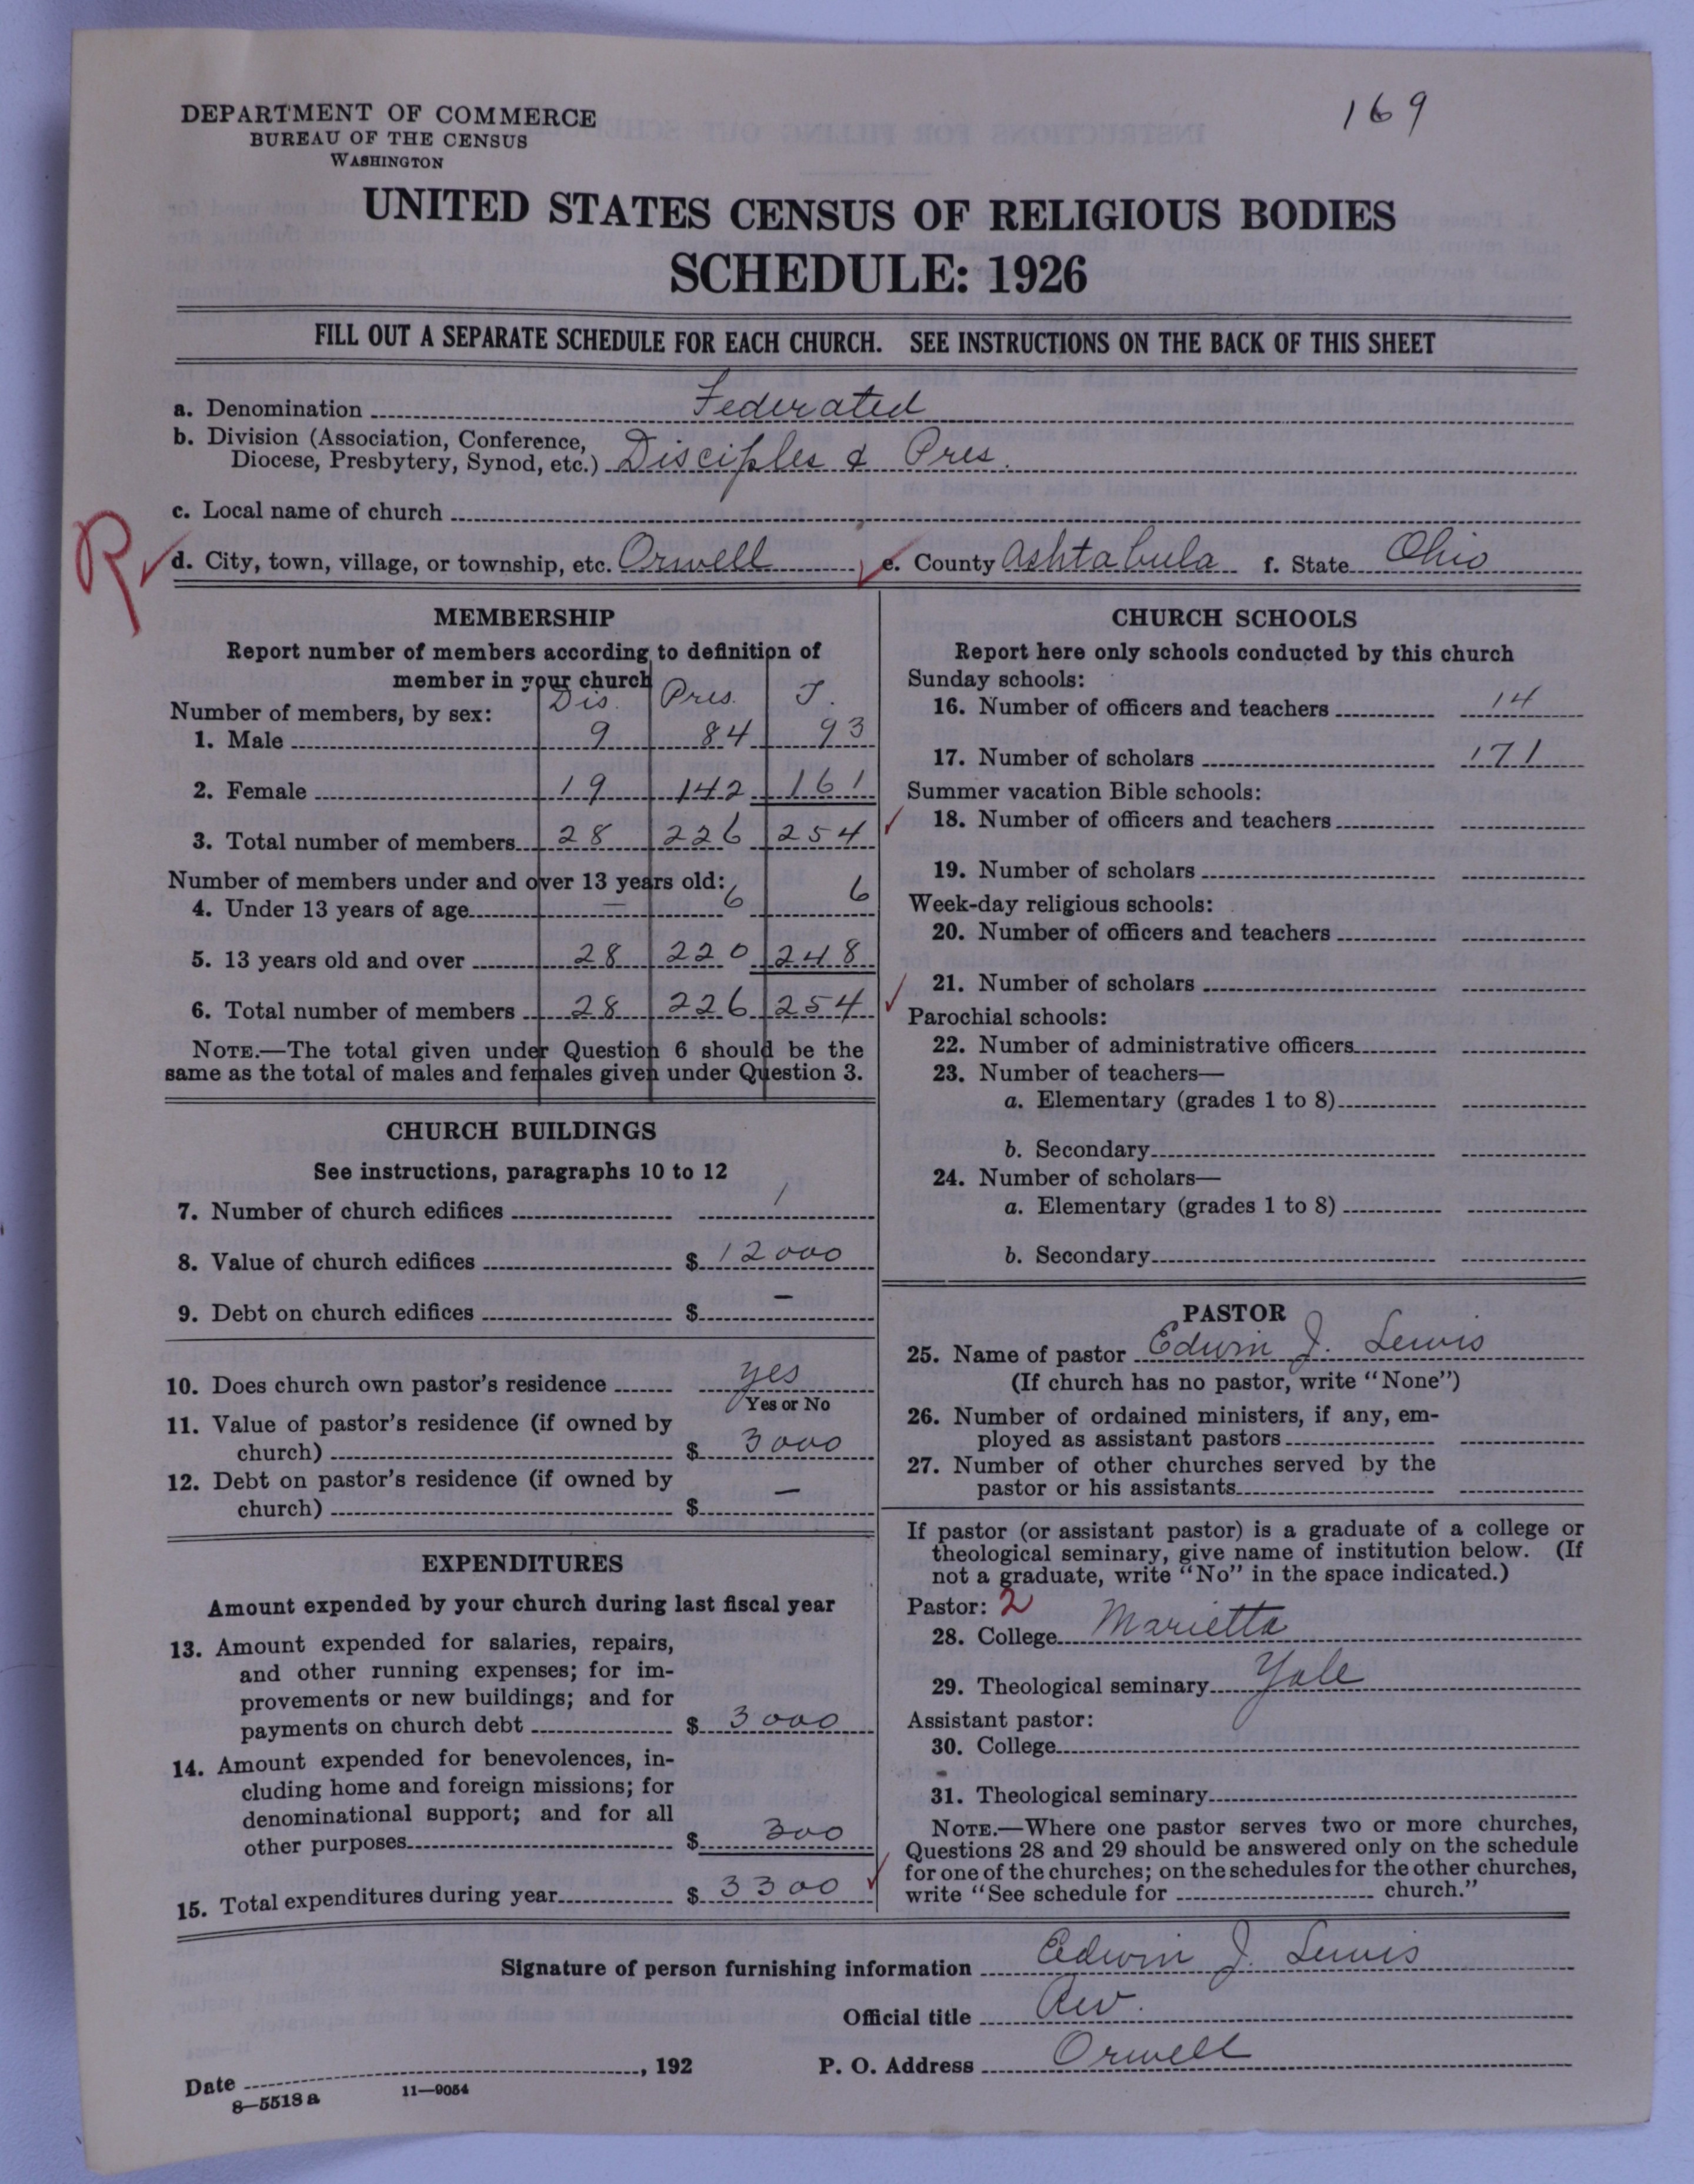 169
DEPARTMENT OF COMMERCE
BUREAU OF THE CENSUS
WASHINGTON
UNITED STATES CENSUS OF RELIGIOUS BODIES
SCHEDULE: 1926
FILL OUT A SEPARATE SCHEDULE FOR EACH CHURCH. SEE INSTRUCTIONS ON THE BACK OF THIS SHEET
a. Denomination Federated
b. Division (Association, Conference,
Diocese, Presbytery, Synod, etc.) Disciples & Pres.
c. Local name of church
R
d. City, town, village, or township, etc. Orwell e. County Ashtabula f. State Ohio
MEMBERSHIP
Report number of members according to definition of
member in your church
Dis. Pres. T.
Number of members, by sex:
1. Male 9 84 93
2. Female 19 142 161
3. Total number of members 28 226 254
Number of members under and over 13 years old:
4. Under 13 years of age — 6 6
5. 13 years old and over 28 220 248
6. Total number of members 28 226 254
NOTE.—The total given under Question 6 should be the
same as the total of males and females given under Question 3.
CHURCH BUILDINGS
See instructions, paragraphs 10 to 12
7. Number of church edifices 1
8. Value of church edifices $ 12000
9. Debt on church edifices $ —
10. Does church own pastor's residence yes
Yes or No
11. Value of pastor's residence (if owned by
church) $ 3000
12. Debt on pastor's residence (if owned by
church) $ —
EXPENDITURES
Amount expended by your church during last fiscal year
13. Amount expended for salaries, repairs,
and other running expenses; for im-
provements or new buildings; and for
payments on church debt $ 3000
14. Amount expended for benevolences, in-
cluding home and foreign missions; for
denominational support; and for all
other purposes $ 300
15. Total expenditures during year $ 3300
CHURCH SCHOOLS
Report here only schools conducted by this church
Sunday schools:
16. Number of officers and teachers 14
17. Number of scholars 171
Summer vacation Bible schools:
18. Number of officers and teachers
19. Number of scholars
Week-day religious schools:
20. Number of officers and teachers
21. Number of scholars
Parochial schools:
22. Number of administrative officers
23. Number of teachers—
a. Elementary (grades 1 to 8)
b. Secondary
24. Number of scholars—
a. Elementary (grades 1 to 8)
b. Secondary
PASTOR
25. Name of pastor Edwin J. Lewis
(If church has no pastor, write "None")
26. Number of ordained ministers, if any, em-
ployed as assistant pastors
27. Number of other churches served by the
pastor or his assistants
If pastor (or assistant pastor) is a graduate of a college or
theological seminary, give name of institution below. (If
not a graduate, write "No" in the space indicated.)
Pastor: 2
28. College Marietta
29. Theological seminary Yale
Assistant pastor:
30. College
31. Theological seminary
NOTE.—Where one pastor serves two or more churches,
Questions 28 and 29 should be answered only on the schedule
for one of the churches; on the schedules for the other churches,
write "See schedule for church."
Signature of person furnishing information Edwin J. Lewis
Official title Rev.
Date , 192 P. O. Address Orwell
8—5518 a 11—9054